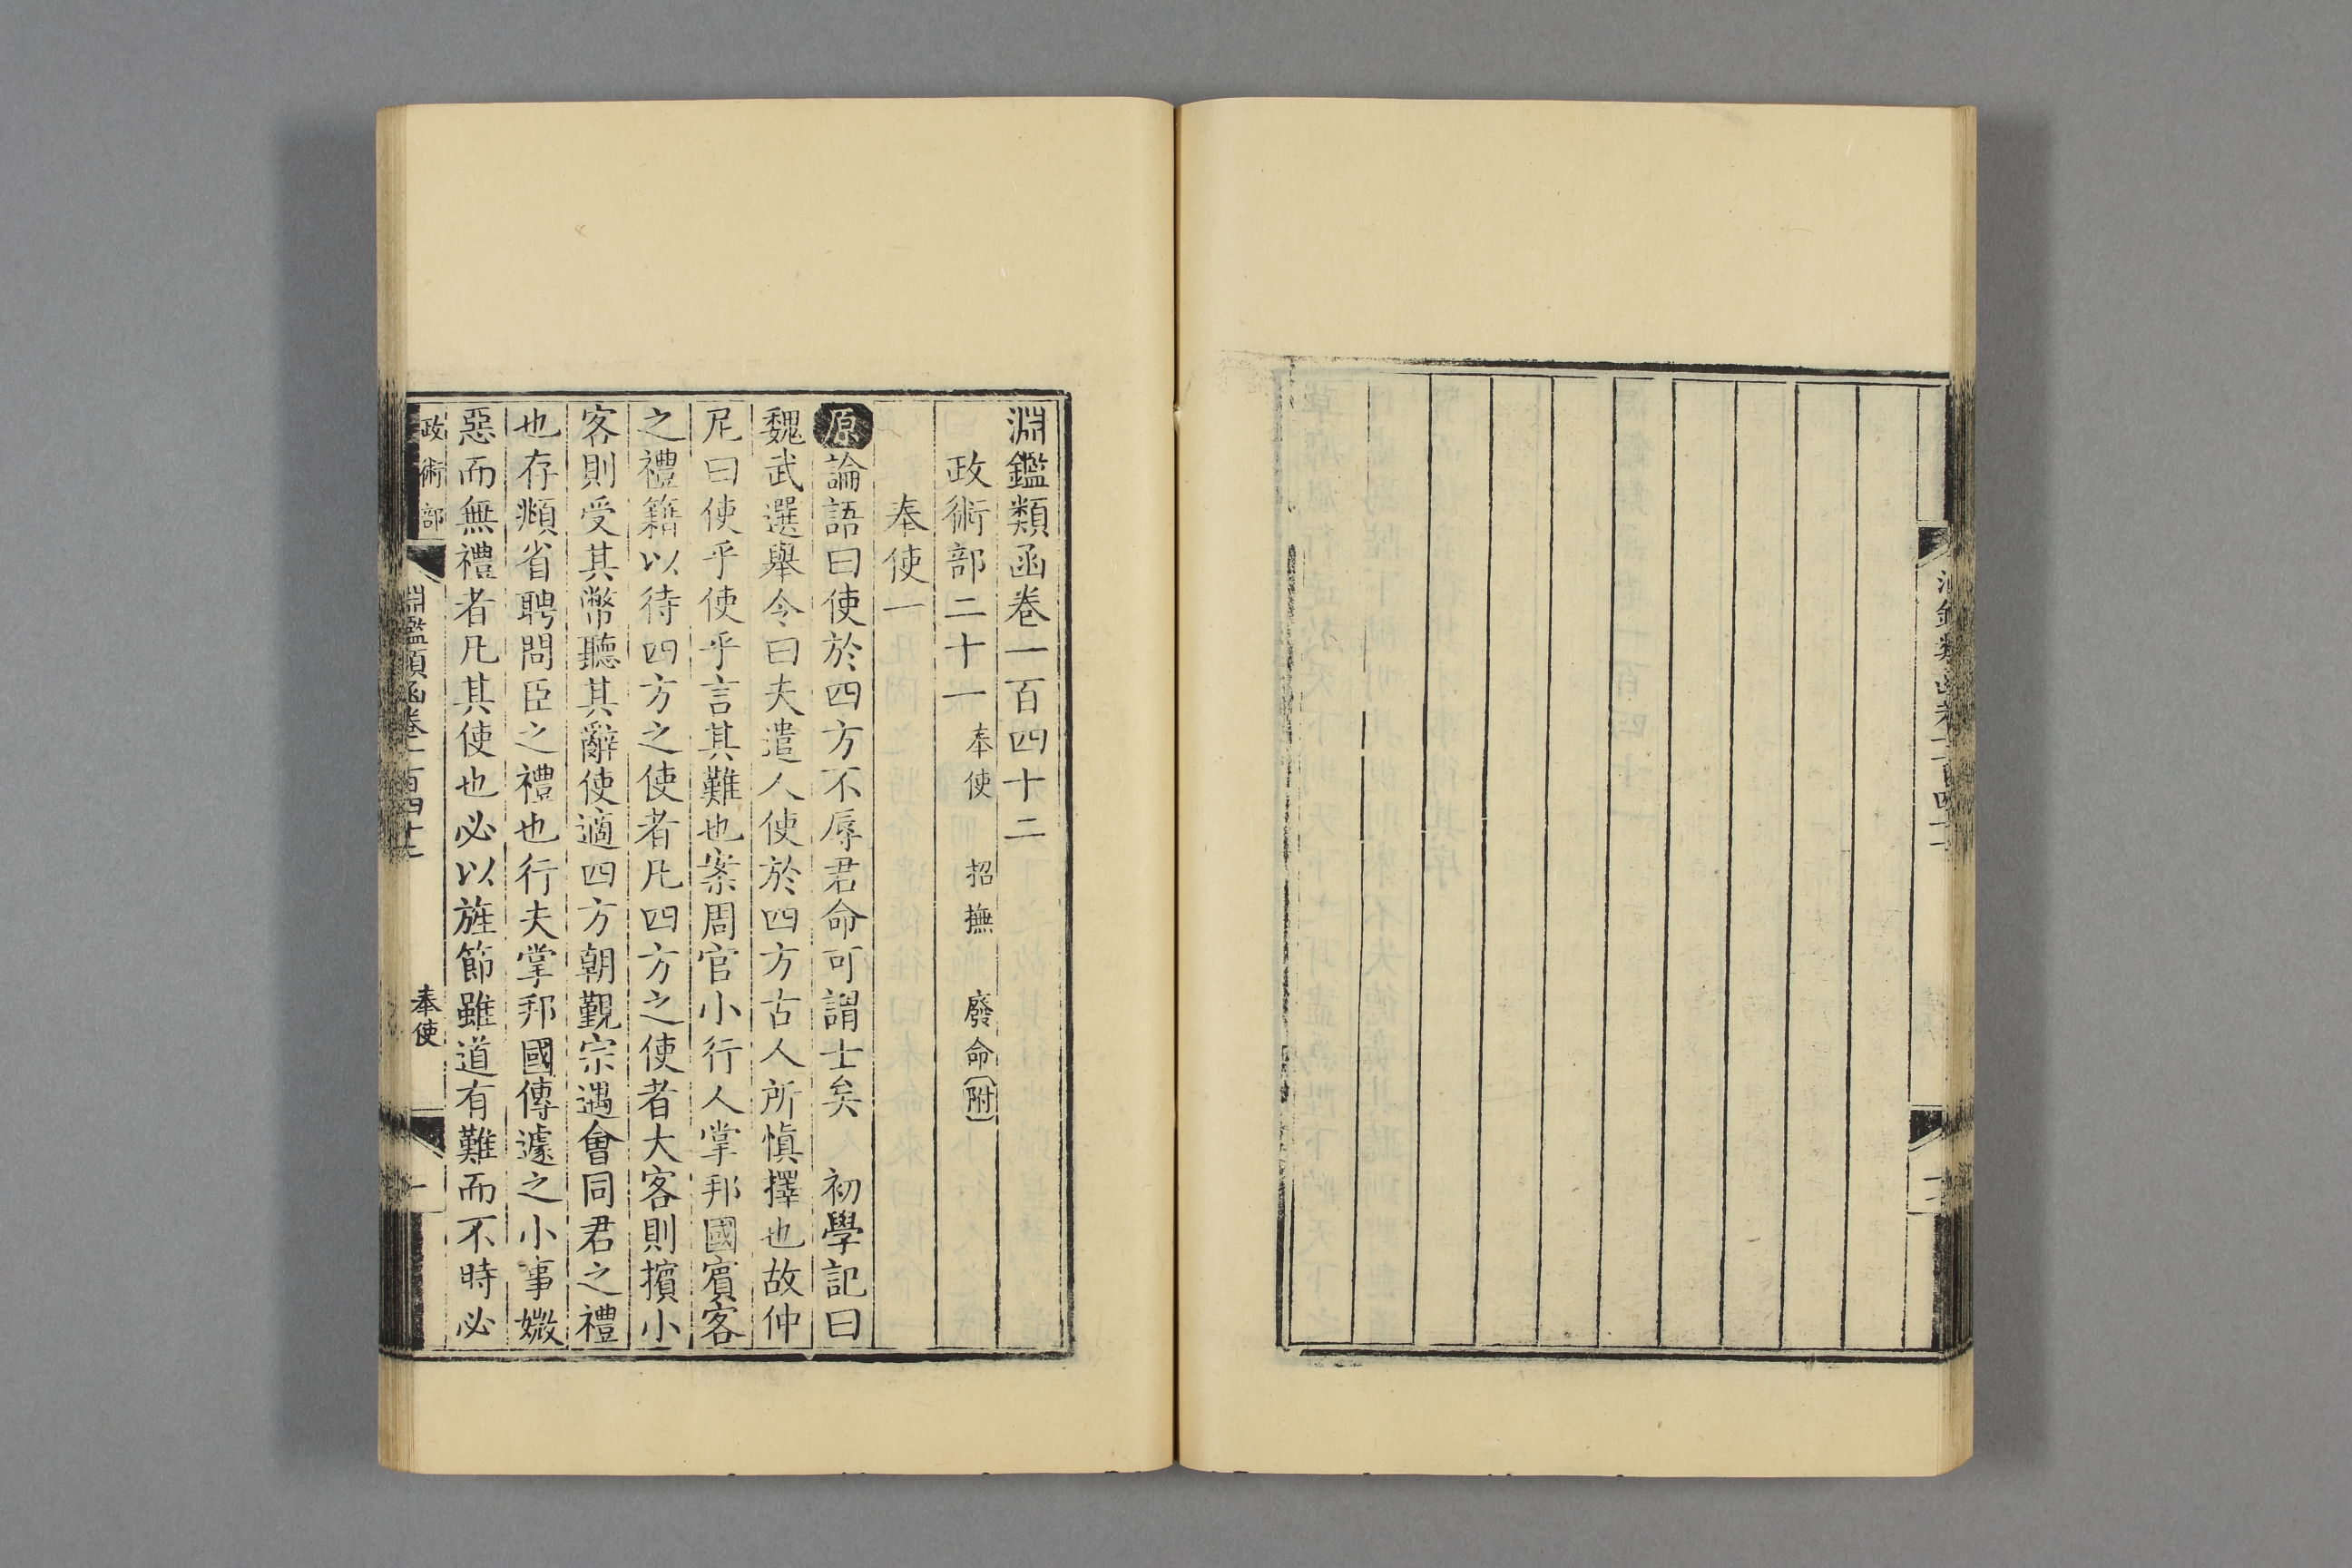 淵鑑類函卷一百四十二
政術部二十一 奉使 招撫 廢命 附
奉使一
原論語曰使於四方不辱君命可謂士矣 初學記曰
魏武選舉令曰夫遣人使於四方古人所慎擇也故仲
尼曰使乎使乎言其難也案周官小行人掌邦國賓客
之禮籍以待四方之使者凡四方之使者大客則擯小
客則受其幣聽其辭使適四方朝覲宗遇會同君之禮
也存頫省聘問臣之禮也行夫掌邦國傳遽之小事媺
惡而無禮者凡其使也必以旌節雖道有難而不時必
政術部 淵鑑類函卷一百四十二 奉使 一